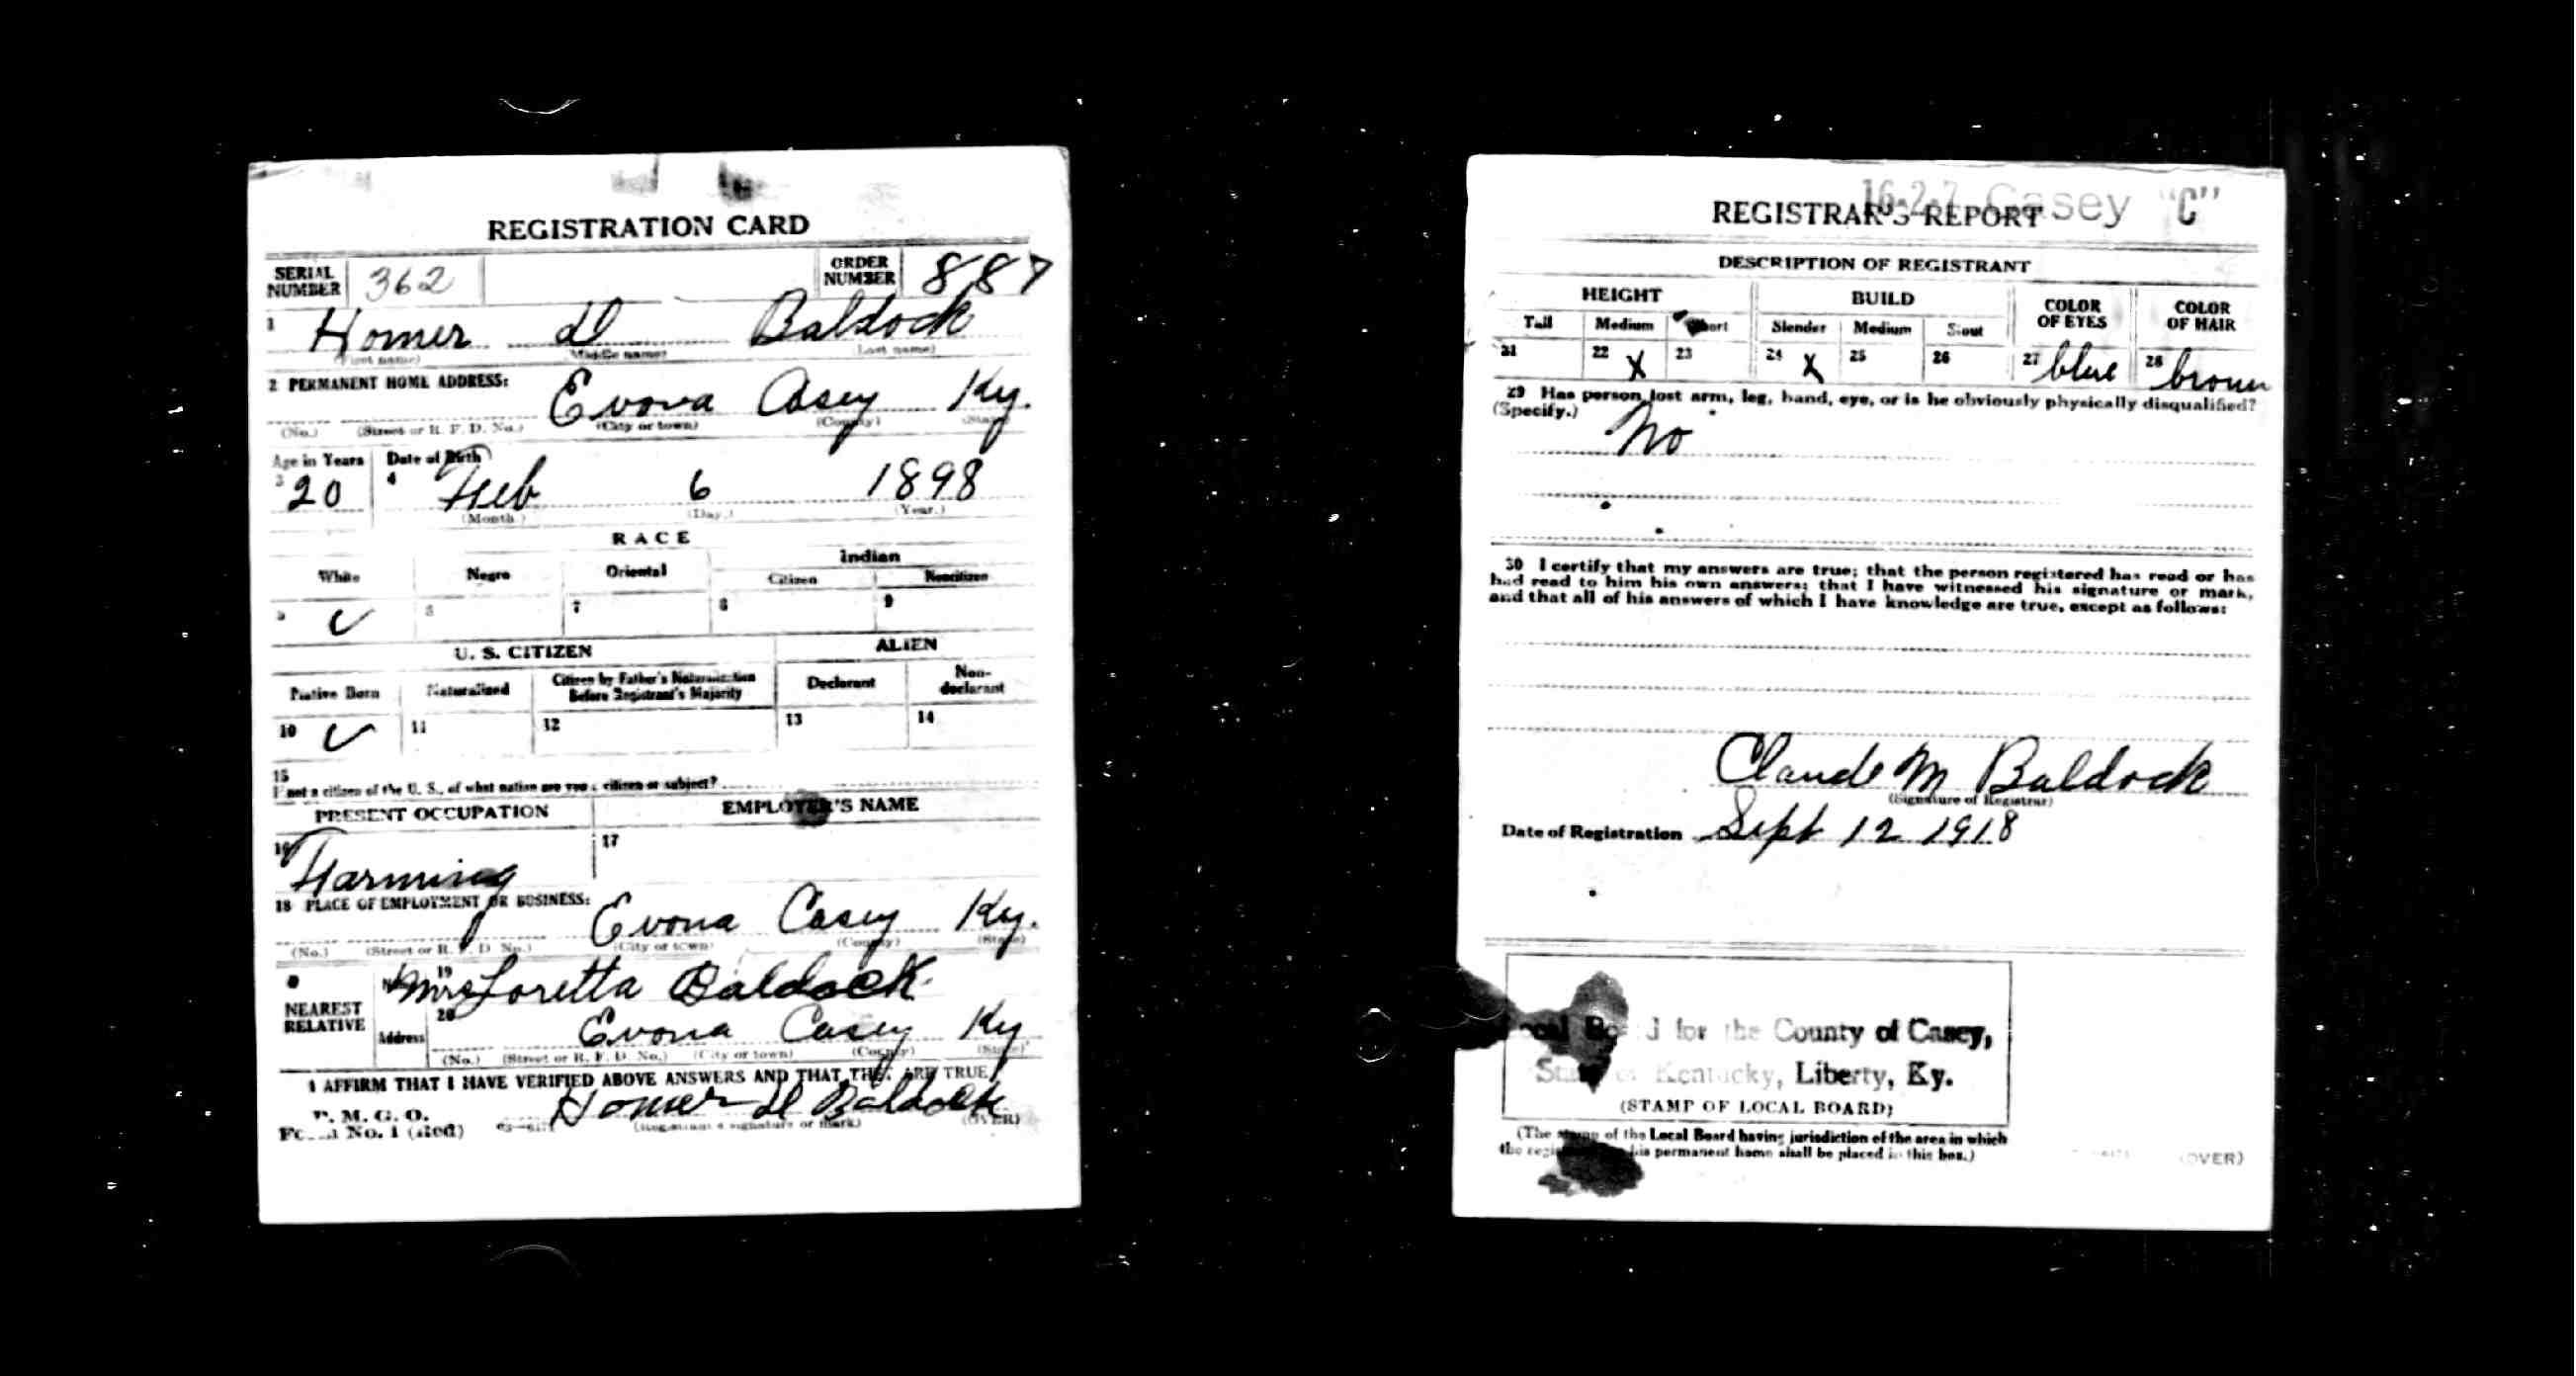 REGISTRATION CARD
SERIAL NUMBER 362 ORDER NUMBER 887
1 Homer D Baldock
(First name) (Middle name) (Last name)
2 PERMANENT HOME ADDRESS:
Evona Casey Ky.
(No.) (Street or R. F. D. No.) (City or town) (County) (State)
Age in Years Date of Birth
3 20 4 Feb 6 1898
(Month.) (Day.) (Year.)
RACE
White Negro Oriental Indian
Citizen Noncitizen
5 6 7 8 9
U. S. CITIZEN ALIEN
Native Born Naturalized Citizen by Father's Naturalization Before Registrant's Majority Declarant Non-declarant
10 11 12 13 14
15
If not a citizen of the U. S., of what nation are you a citizen or subject?
PRESENT OCCUPATION EMPLOYER'S NAME
16 Farming 17
18 PLACE OF EMPLOYMENT OR BUSINESS:
Evona Casey Ky.
(No.) (Street or R. F. D. No.) (City or town) (County) (State)
NEAREST RELATIVE 19 Mrs Loretta Baldock
Address 20 Evona Casey Ky
(No.) (Street or R. F. D. No.) (City or town) (County) (State)
I AFFIRM THAT I HAVE VERIFIED ABOVE ANSWERS AND THAT THEY ARE TRUE
P. M. G. O.
Form No. 1 (Red) Homer D Baldock
(Registrant's signature or mark) (OVER)
16-2-7 Casey "C"
REGISTRAR'S REPORT
DESCRIPTION OF REGISTRANT
HEIGHT BUILD COLOR OF EYES COLOR OF HAIR
Tall Medium Short Slender Medium Stout
21 22 X 23 24 X 25 26 27 blue 28 brown
29 Has person lost arm, leg, hand, eye, or is he obviously physically disqualified?
(Specify.) No
30 I certify that my answers are true; that the person registered has read or has
had read to him his own answers; that I have witnessed his signature or mark,
and that all of his answers of which I have knowledge are true, except as follows:
Claude M Baldock
(Signature of Registrar)
Date of Registration Sept 12 1918
Local Board for the County of Casey,
State of Kentucky, Liberty, Ky.
(STAMP OF LOCAL BOARD)
(The stamp of the Local Board having jurisdiction of the area in which
the his permanent home shall be placed in this box.)
(OVER)